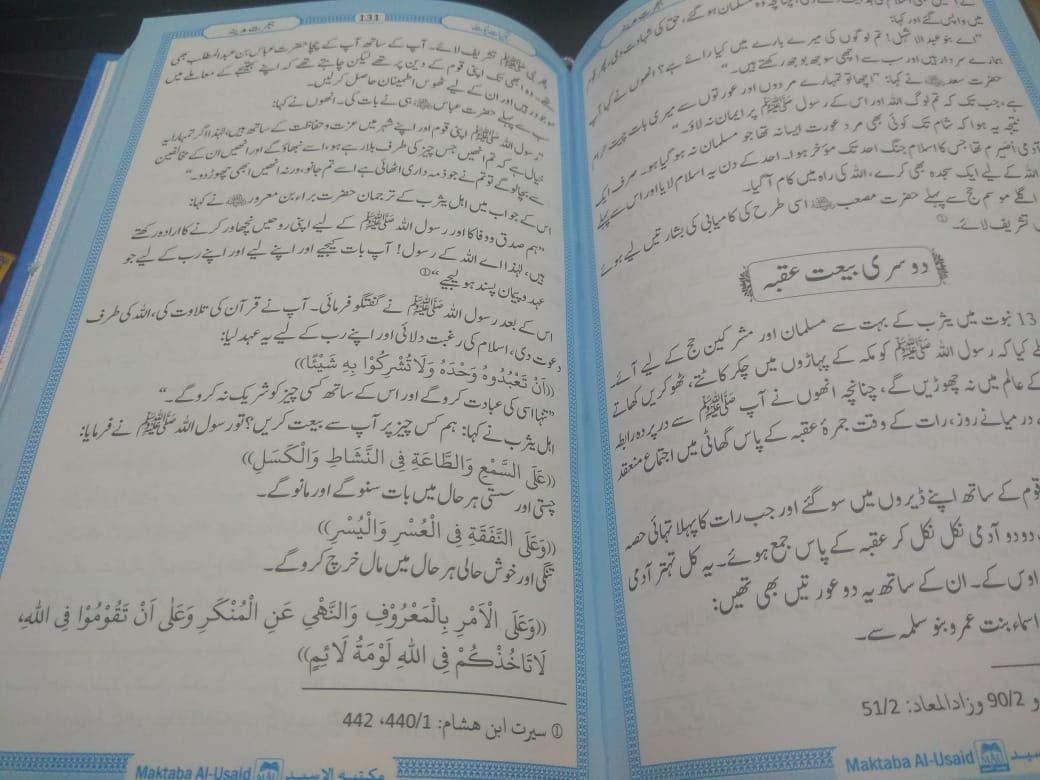 میں واپس گئے اور کہا:
"اے بنو عبدالاشہل! تم لوگوں کی میرے بارے میں کیا رائے ہے؟ انھوں نے کہا: آپ
ہمارے سردار ہیں اور سب سے اچھی سوجھ بوجھ رکھتے ہیں۔"
حضرت سعد نے کہا: "اچھا تو تمہارے مردوں اور عورتوں سے میری بات چیت حرام
ہے، جب تک کہ تم لوگ اللہ اور اس کے رسول ﷺ پر ایمان نہ لاؤ۔"
نتیجہ یہ ہوا کہ شام تک کوئی بھی مرد عورت ایسا نہ تھا جو مسلمان نہ ہو گیا ہو۔ صرف ایک
آدمی اُصَیرِم تھا جس کا اسلام جنگ احد تک مؤخر ہوا۔ احد کے دن یہ اسلام لایا اور اس سے پہلے
اللہ کے لیے ایک سجدہ بھی کرے، اللہ کی راہ میں کام آ گیا۔
اگلے موسم حج سے پہلے حضرت مصعب اسی طرح کی کامیابی کی بشارتیں لیے ہوئے
تشریف لائے۔ ①
دوسری بیعت عقبہ
13 نبوت میں یثرب کے بہت سے مسلمان اور مشرکین حج کے لیے آئے۔
کیا کہ رسول اللہ ﷺ کو مکہ کے پہاڑوں میں چکر کاٹتے، ٹھوکریں کھاتے
کے عالم میں نہ چھوڑیں گے، چنانچہ انھوں نے آپ ﷺ سے در پردہ رابطہ
درمیانے روز، رات کے وقت جمرۂ عقبہ کے پاس گھاٹی میں اجتماع منعقد
قوم کے ساتھ اپنے ڈیروں میں سو گئے اور جب رات کا پہلا تہائی حصہ
دو دو آدمی نکل نکل کر عقبہ کے پاس جمع ہوئے۔ یہ کل تہتر آدمی
اوس کے۔ ان کے ساتھ یہ دو عورتیں بھی تھیں:
اسماء بنت عمرو بنو سلمہ سے۔
و 90/2 وزادالمعاد: 51/2
Maktaba Al-Usaid
131
ہجرت مدینہ
ﷺ تشریف لائے۔ آپ کے ساتھ آپ کے چچا حضرت عباس بن عبدالمطلب بھی
تھے۔ وہ ابھی تک اپنی قوم کے دین پر تھے لیکن چاہتے تھے کہ اپنے بھتیجے کے معاملے میں
موجود رہیں اور ان کے لیے ٹھوس اطمینان حاصل کر لیں۔
سب سے پہلے حضرت عباس ہی نے بات کی۔ انھوں نے کہا:
"رسول اللہ ﷺ اپنی قوم اور اپنے شہر میں عزت و حفاظت کے ساتھ ہیں، لہٰذا اگر تمہارا یہ
خیال ہے کہ تم انھیں جس چیز کی طرف بلا رہے ہو، اسے نبھاؤ گے اور انھیں ان کے مخالفین
سے بچا لو گے تو تم نے جو ذمہ داری اٹھائی ہے اسے تم جانو، ورنہ انھیں ابھی چھوڑ دو۔"
اس کے جواب میں اہل یثرب کے ترجمان حضرت براء بن معرور نے کہا:
"ہم صدق و وفا کا اور رسول اللہ ﷺ کے لیے اپنی روحیں نچھاور کرنے کا ارادہ رکھتے
ہیں، لہٰذا اے اللہ کے رسول! آپ بات کیجیے اور اپنے لیے اور اپنے رب کے لیے جو
عہد و پیمان پسند ہو لیجیے" ①
اس کے بعد رسول اللہ ﷺ نے گفتگو فرمائی۔ آپ نے قرآن کی تلاوت کی، اللہ کی طرف
دعوت دی، اسلام کی رغبت دلائی اور اپنے رب کے لیے یہ عہد لیا:
((أَنْ تَعْبُدُوهُ وَحْدَهُ وَلَا تُشْرِكُوْا بِهِ شَيْئًا))
"تنہا اسی کی عبادت کرو گے اور اس کے ساتھ کسی چیز کو شریک نہ کرو گے۔"
اہل یثرب نے کہا: ہم کس چیز پر آپ سے بیعت کریں؟ تو رسول اللہ ﷺ نے فرمایا:
((عَلَى السَّمْعِ وَالطَّاعَةِ فِي النَّشَاطِ وَالْكَسَلِ))
چستی اور سستی ہر حال میں بات سنو گے اور مانو گے۔
((وَعَلَى النَّفَقَةِ فِي الْعُسْرِ وَالْيُسْرِ))
تنگی اور خوش حالی ہر حال میں مال خرچ کرو گے۔
((وَعَلَى الْأَمْرِ بِالْمَعْرُوْفِ وَالنَّهْيِ عَنِ الْمُنْكَرِ وَعَلٰى أَنْ تَقُوْمُوْا فِي اللهِ،
لَا تَاخُذُكُمْ فِي اللهِ لَوْمَةُ لَائِمٍ))
① سیرت ابن ہشام: 440/1، 442
Maktaba Al-Usaid مکتبہ الاسید